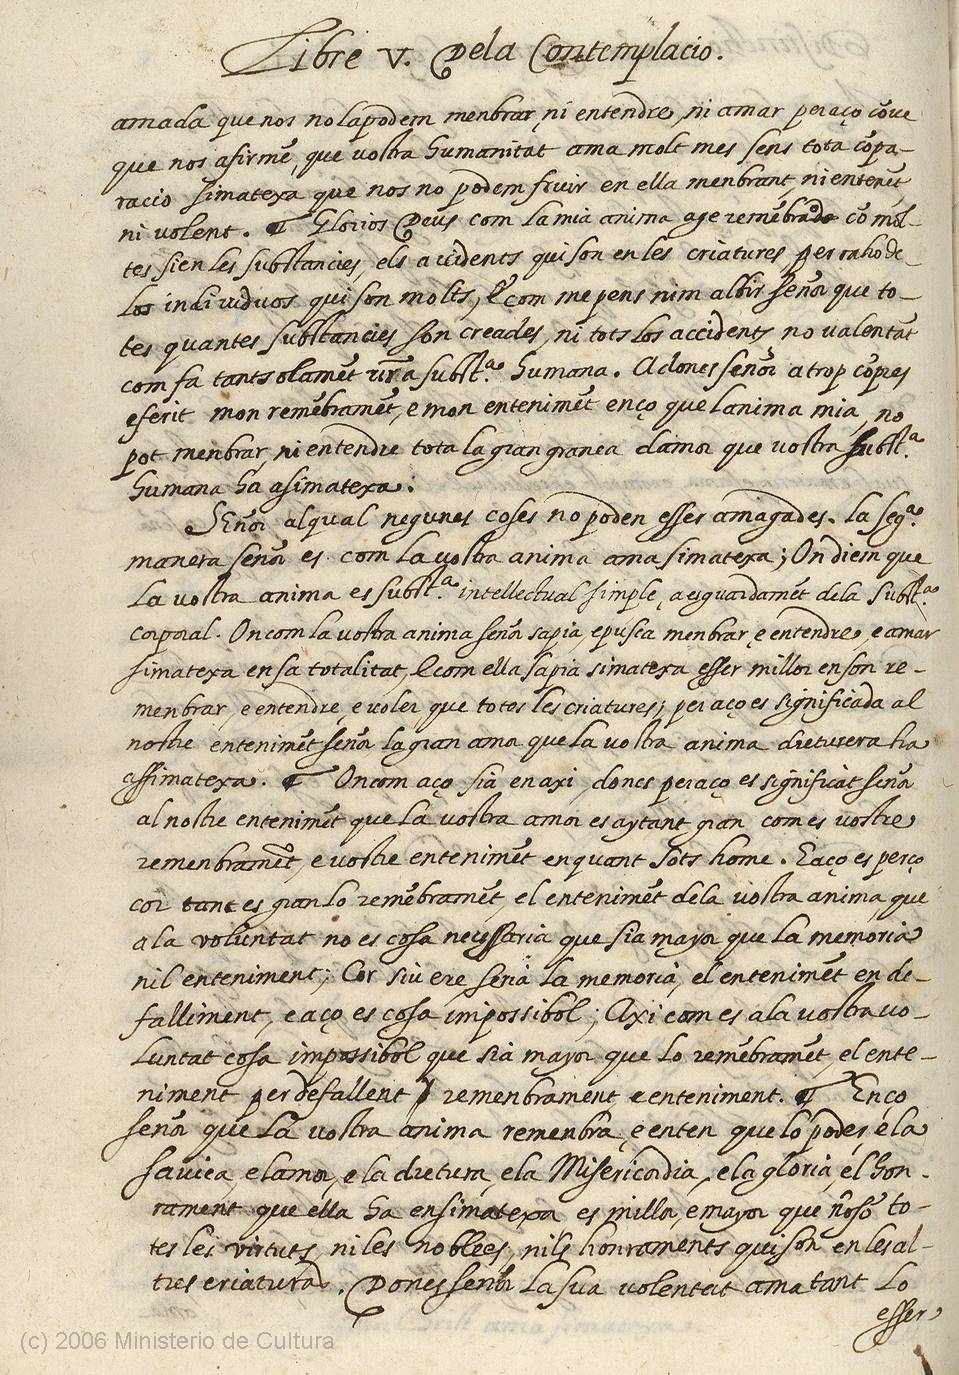 Libre V. Dela Contemplacio.
amada que nos no la podem menbrar ni entendre, ni amar per aço cõve
que nos afirmẽ, que vostra humanitat ama molt mes sens tota cõpa-
racio simatexa que nos no podem fruir en ella menbrant, ni entenẽt
ni volent. ¶ Glorios Deus com la mia anima age remẽbrado cõ mol-
tes sien les substancies, els accidents qui son en les criatures per raho de
los individuos qui son molts, E com me pens nim albir señor que to-
tes quantes substancies son creades, ni tots los accidents no valen tãt
com fa tant solamẽt vr̃a subst.ª humana. Adones señor a trop cõpres
e ferit mon remẽbramẽt, e mon entenimẽt en ço que lanima mia, no
pot menbrar, ni entendre tota la gran granea damor que vostra subst.ª
humana ha asimatexa.
Señor alqual negunes coses no poden esser amagades. la seg.ª
manera señor es com la vostra anima ama simatexa; On diem que
la vostra anima es subst.ª intellectual simple, a esguardamẽt dela subst.ª
corporal. On com la vostra anima señor sapia, e pusca menbrar e entendre, e amar
simatexa en sa totalitat, E com ella sapia simatexa esser millor en son re-
menbrar, e entendre, e voler que totes les criatures; per aço es significada al
nostre entenimẽt señor la gran amor que la vostra anima dreturera ha
assimatexa. ¶ On com aço sia en axi, doncs per aço es significat señor
al nostre entenimẽt que la vostra amor es aytant gran com es vostre
remenbramẽt, e vostre entenimẽt en quant sots home. E aço es perço
cor tant es gran lo remẽbramẽt, el entenimẽt dela vostra anima, que
a la voluntat no es cosa necessaria que sia mayor que la memoria
nil enteniment; Cor siu ere seria la memoria, el entenimẽt en de-
falliment, e aço es cosa impossibol; Axi com es ala vostra vo-
luntat cosa impossibol que sia mayor que lo remẽbramẽt, el ente-
niment per defallent remenbrament e enteniment. ¶ En ço
señor que la vostra anima remenbra, e enten que lo poder, e la
saviea, e lamor, e la dretura, e la Misericordia, e la gloria, el hon-
rament que ella ha en simatexa es millor, e mayor que no sõ to-
tes les virtuts, ni les noblees, nils honraments qui son en les al-
tres criatura. Dones señor la sua volentat ama tant lo
esser
(c) 2006 Ministerio de Cultura